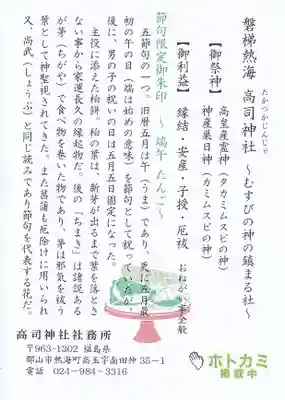 たかつかじんじゃ
磐梯熱海 高司神社 ~むすびの神の鎮まる社~
【御祭神】 高皇産霊神(タカミムスビの神)
神産巣日神(カミムスビの神)
おねがい事全般
【御利益】 縁結・安産・子授・厄祓
節句限定御朱印 ~ 端午 たんご~
五節句の一つ。旧暦五月は午(うま)であり、更に五月最
初の午の日(端は始めの意味)を節句として祝っていたが、
後に、男の子の祝いの日は五月五日固定になった。
主役に添えた柏餅。柏の葉は、新芽が出るまで葉を落とさ
ない事から家運長久の縁起物だ。後の「ちまき」は諸説ある
が茅(ちがや)で食べ物を巻いた物であり、茅は邪気を祓う
葉として神聖視されてきた。また菖蒲も厄除けに用いられ
又、尚武(しょうぶ)と同じ読みであり節句を代表する花だ。
高司神社社務所
〒963-1302 福島県
郡山市熱海町高玉字南田仲35-1
電話 024-984-3316
ホトカミ
掲載中